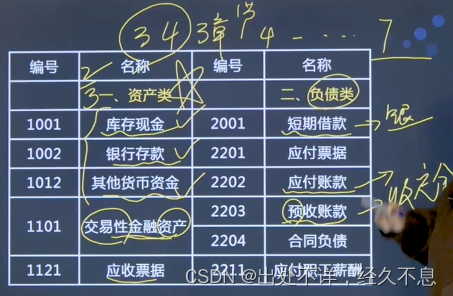 3 4 3章 4 - ..... 7
编号 名称 编号 名称
一、资产类 二、负债类
1001 库存现金 2001 短期借款
1002 银行存款 2201 应付票据
1012 其他货币资金 2202 应付账款
1101 交易性金融资产 2203 预收账款
2204 合同负债
1121 应收票据 2211 应付职工薪酬
CSDN @出处不详，经久不息